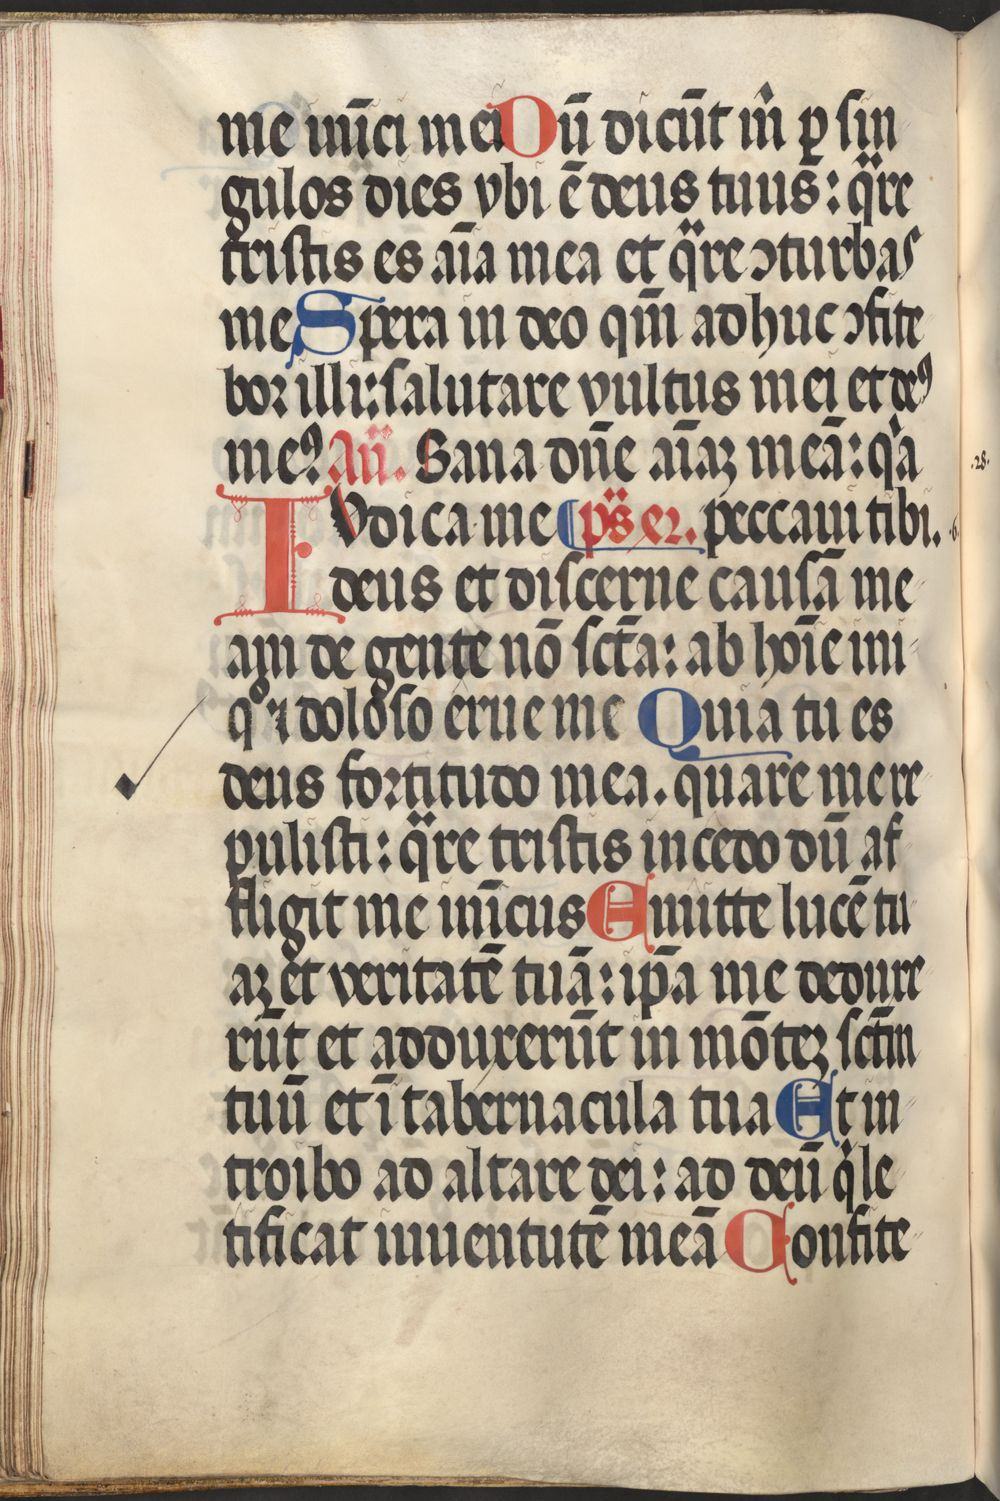 me inimīci mei Dū dicūt m̂ ꝑ sin
gulos dies vbi ē deus tuus: qͣre
tristis es aīa mea et qͣre ɔturbas
me Spera in deo qm̄ adhuc ɔfite
bor illi: salutare vultus mei et deꝰ
meꝰ Añ. Sana dn̄e aīaꝫ meā: qͥa
IVdica me ps̄ 42. peccaui tibi.
deus et discerne causā me
am de gente nō sct̄a: ab hoīe ini
qͦ ⁊ doloso erue me Quia tu es
deus fortitudo mea. quare me re
pulisti: qͣre tristis incedo dū af
fligit me inīcus Emitte lucē tu
aꝫ et veritatē tuā: ip̄a me deduxe
rūt et adduxerūt in mōteꝫ sct̄m
tuū et ī tabernacula tua Et in
troibo ad altare dei: ad deū qͥ le
tificat iuuentutē meā Confite
.28.